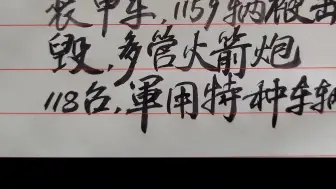 装甲车,1159辆被击
毁,多管火箭炮
118台,軍用特种车辆